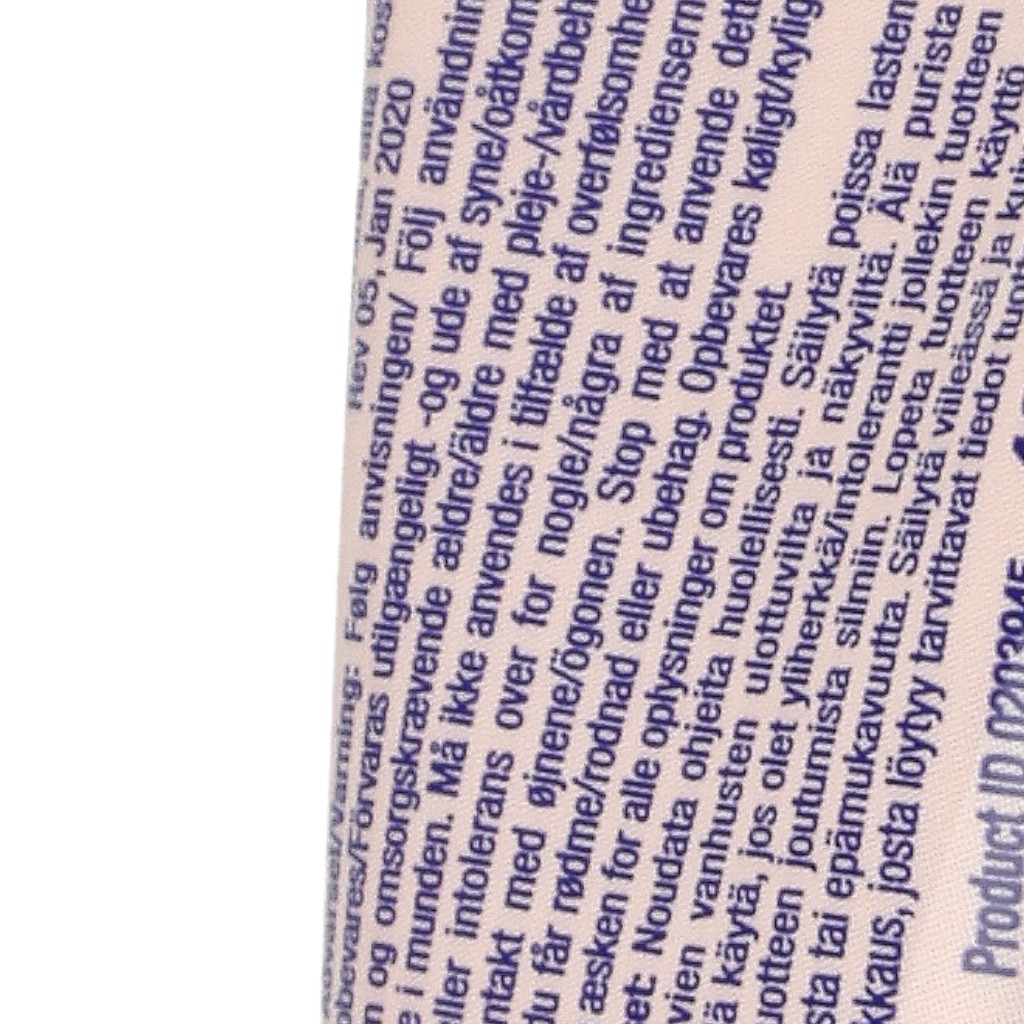 Rev 05, Jan 2020
Følg anvisningen/ Följ användnin
bevares/Förvaras utilgængeligt -og ude af syne/oåtkom
n og omsorgskrævende ældre/äldre med pleje-/vårdbeh
e i munden. Må ikke anvendes i tilfælde af overfølsomhe
ller intolerans over for nogle/några af ingrediensern
ntakt med øjnene/ögonen. Stop med at anvende dett
du får rødme/rodnad eller ubehag. Opbevares køligt/kylig
æsken for alle oplysninger om produktet.
et: Noudata ohjeita huolellisesti. Säilytä poissa lasten
vien vanhusten ulottuvilta ja näkyviltä. Älä purista
ä käytä, jos olet yliherkkä/intolerantti jollekin tuotteen
uotteen joutumista silmiin. Lopeta tuotteen käyttö
sta tai epämukavuutta. Säilytä viileässä ja
kkaus, josta löytyy tarvittavat tiedot
Product ID 0203945